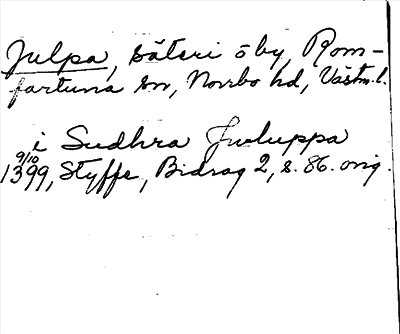 Julpa, säteri o by, Rom-
fartuna sn, Norrbo hd, Västm. l.
i Sudhra Juluppa
9/10
1399, Styffe, Bidrag 2, s. 86. orig.